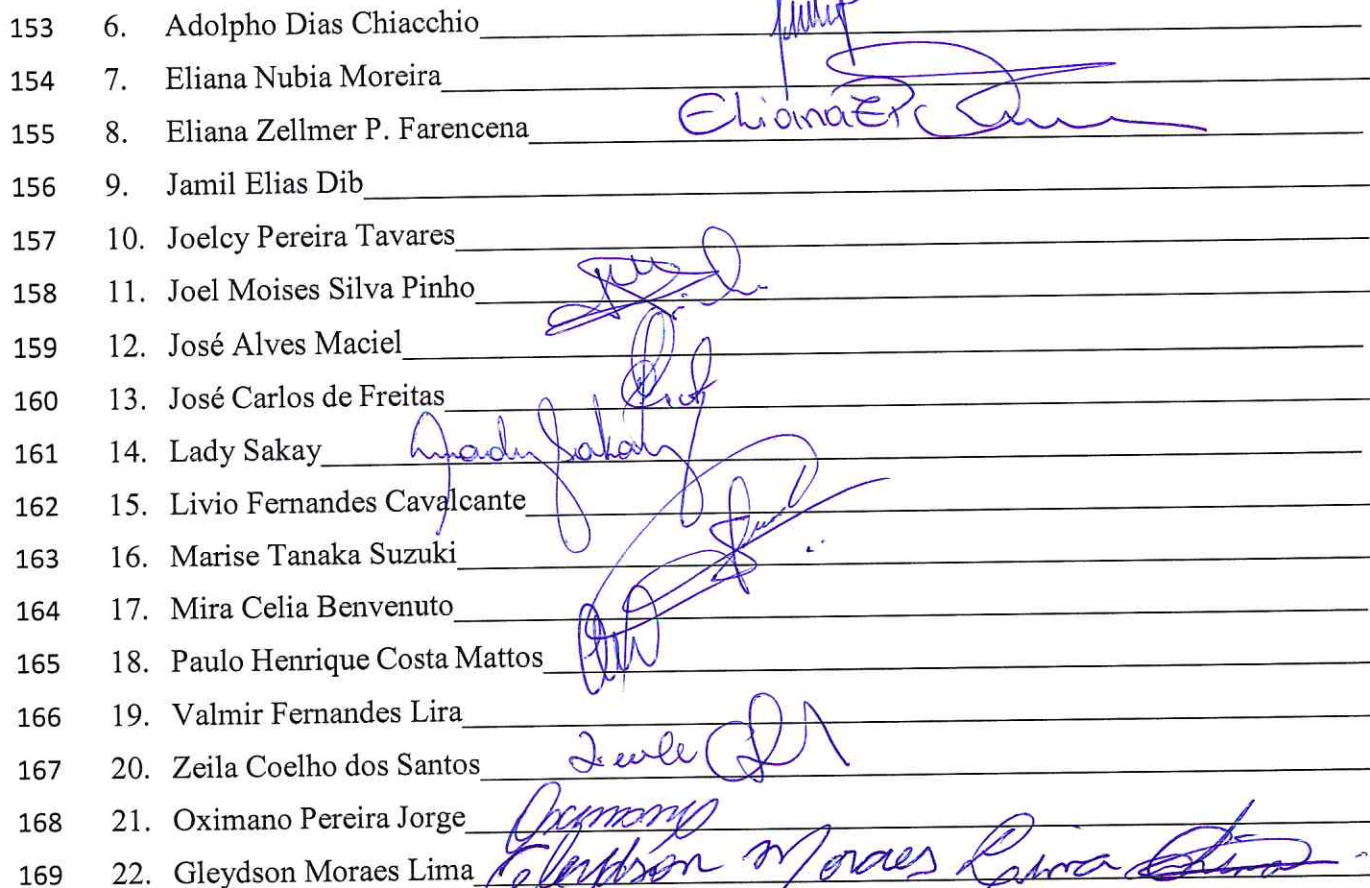 153 6. Adolpho Dias Chiacchio
154 7. Eliana Nubia Moreira
155 8. Eliana Zellmer P. Farencena Eliana
156 9. Jamil Elias Dib
157 10. Joelcy Pereira Tavares
158 11. Joel Moises Silva Pinho
159 12. José Alves Maciel
160 13. José Carlos de Freitas
161 14. Lady Sakay Lady Sakay
162 15. Livio Fernandes Cavalcante
163 16. Marise Tanaka Suzuki
164 17. Mira Celia Benvenuto
165 18. Paulo Henrique Costa Mattos
166 19. Valmir Fernandes Lira
167 20. Zeila Coelho dos Santos
168 21. Oximano Pereira Jorge
169 22. Gleydson Moraes Lima Gleydson Moraes Lima